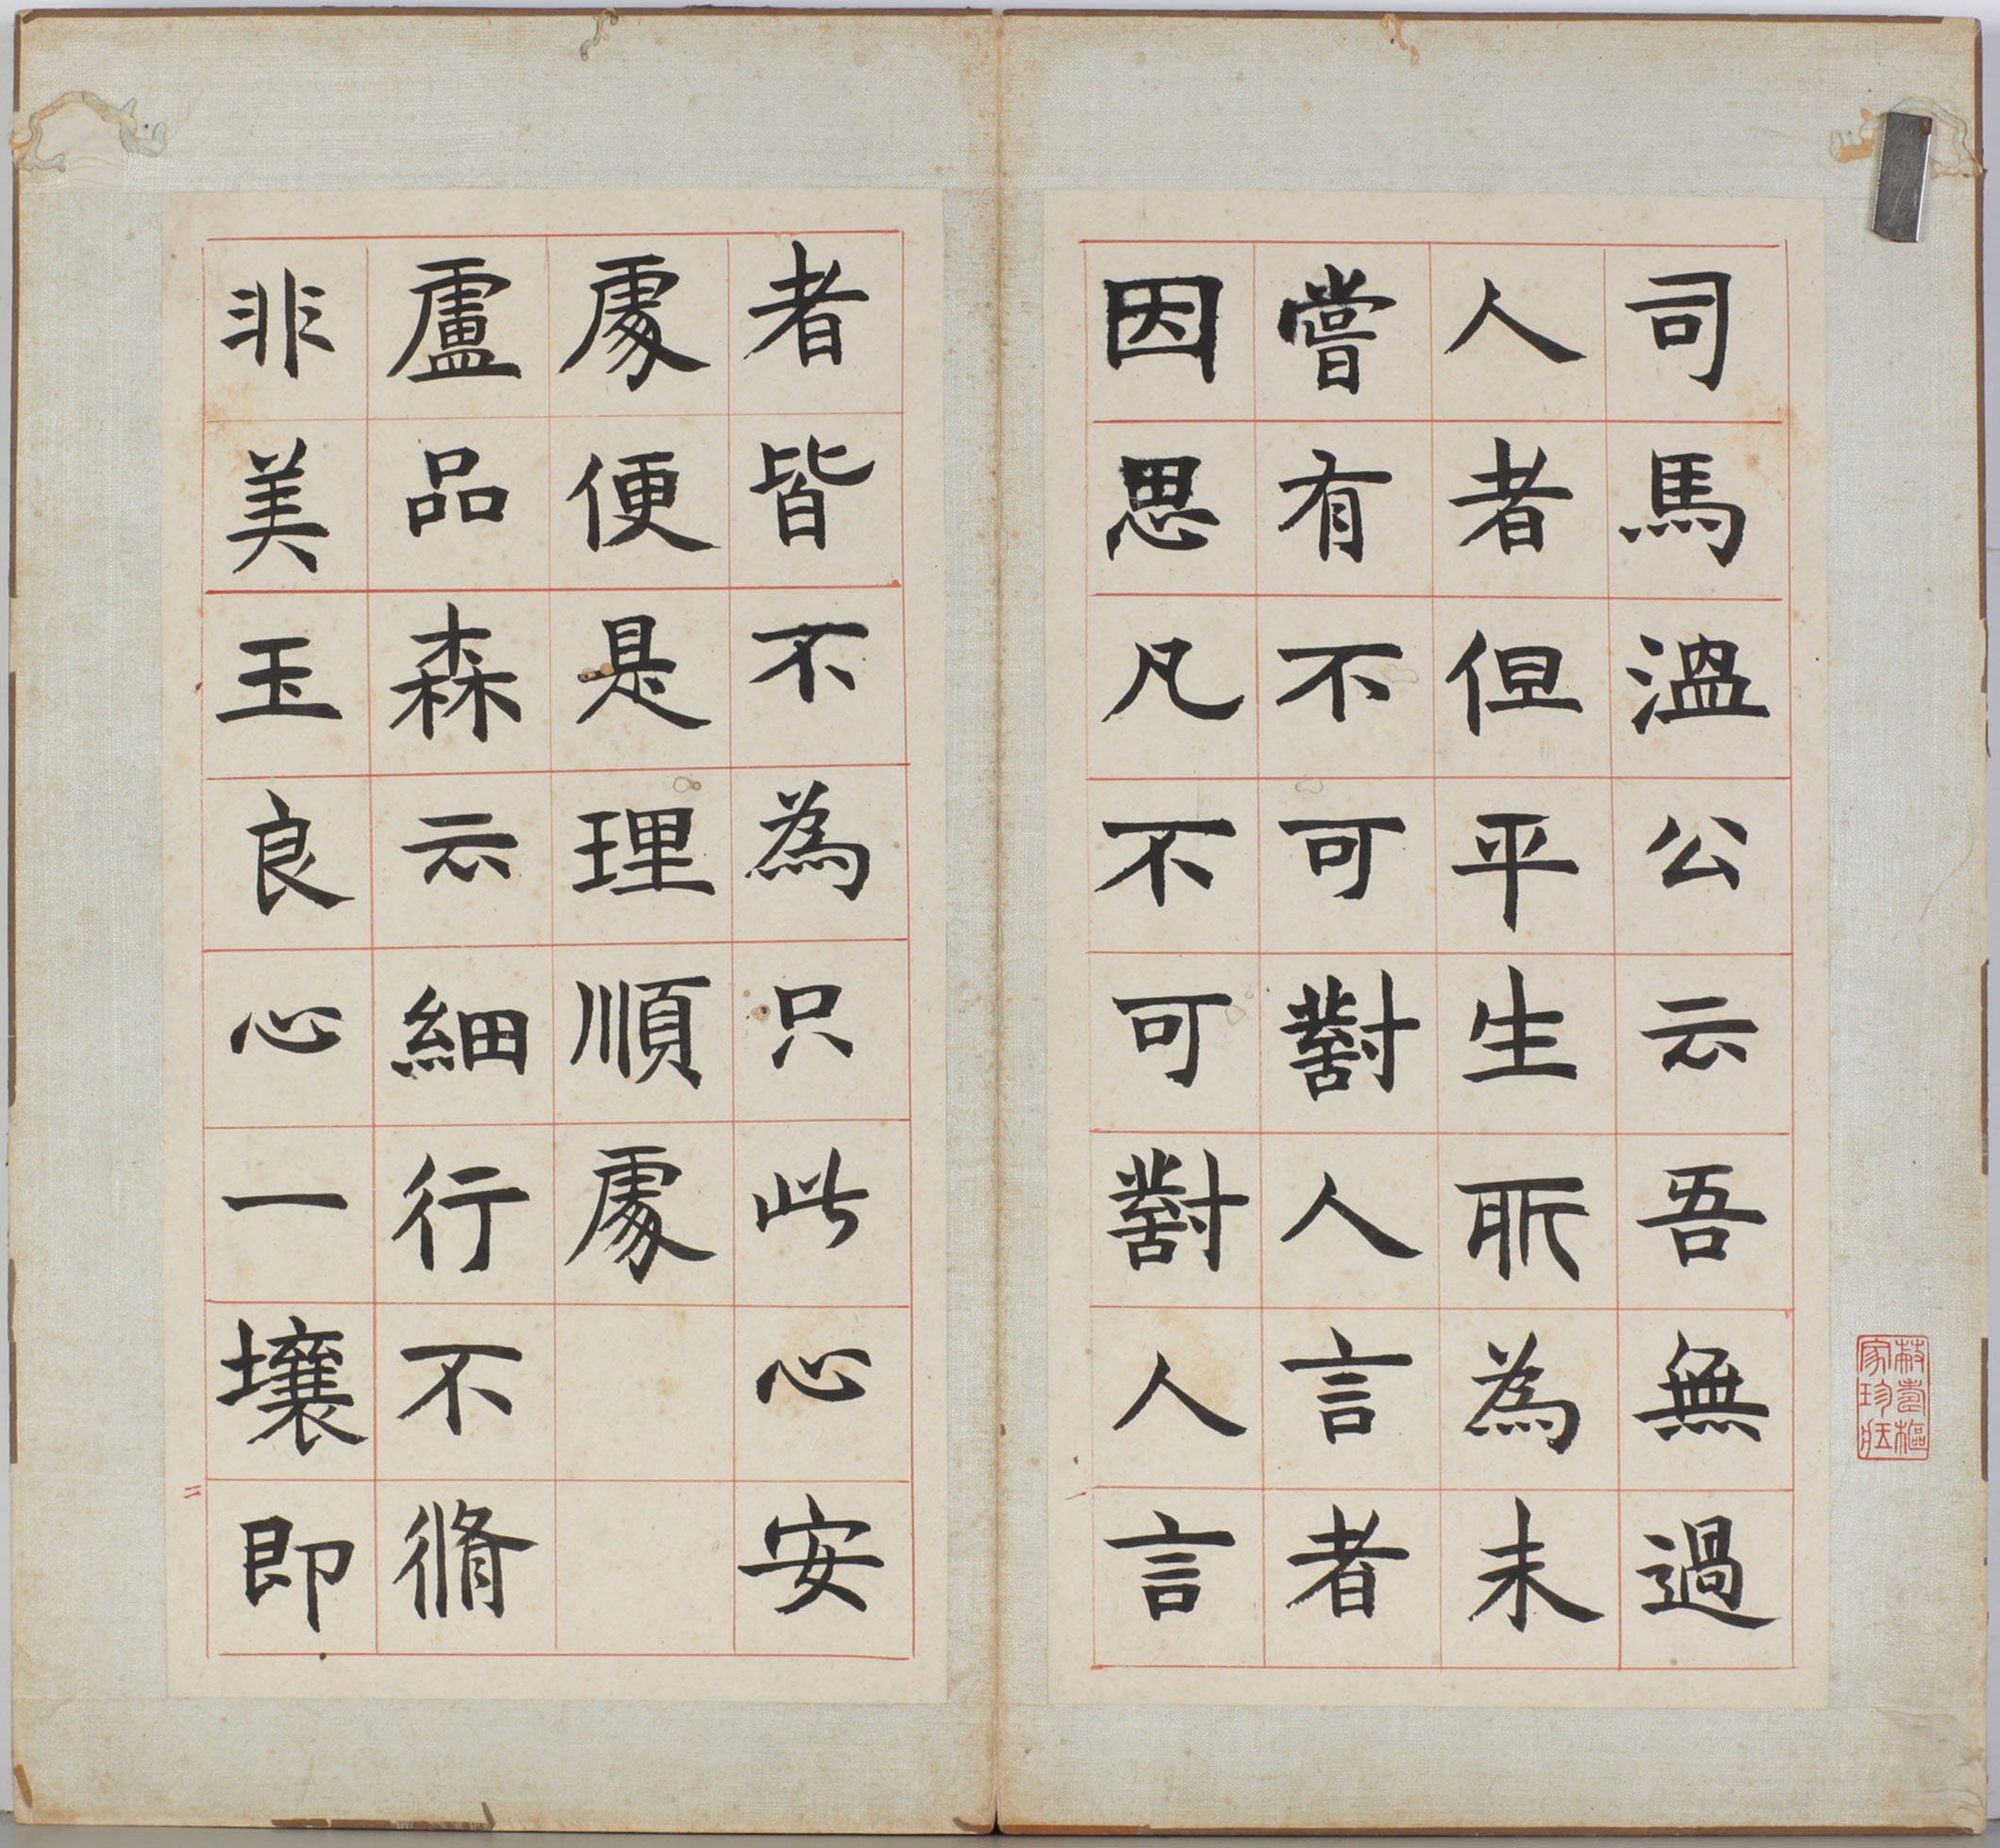 司馬溫公云吾無過
人者但平生所為未
嘗有不可對人言者
因思凡不可對人言
者皆不為只此心安
處便是理順處
盧品森云細行不脩
非美玉良心一壤即
一
二